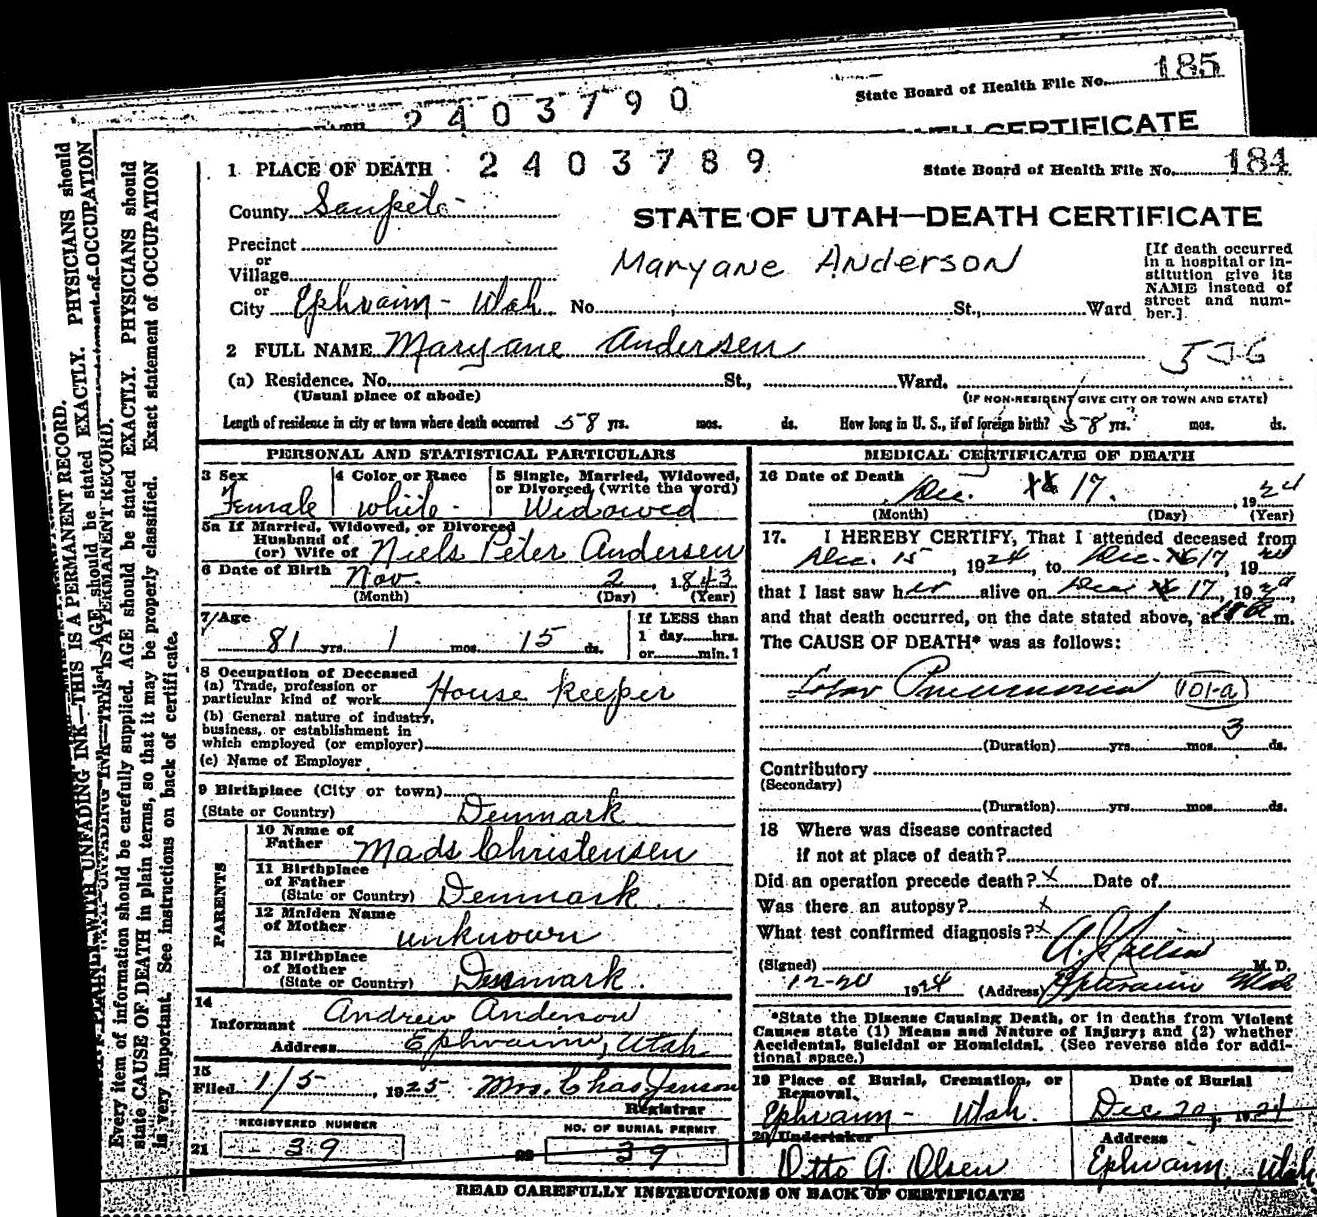 185
State Board of Health File No.
2403790
CERTIFICATE
1 PLACE OF DEATH 2403789
State Board of Health File No. 184
County Sanpete
STATE OF UTAH—DEATH CERTIFICATE
Precinct
or
Village
or
City Ephraim - Utah No. St., Ward
Maryane Anderson
[If death occurred
in a hospital or in-
stitution give its
NAME instead of
street and num-
ber.]
2 FULL NAME Maryane Andersen
536
(a) Residence. No. St., Ward.
(Usual place of abode)
(IF NON-RESIDENT GIVE CITY OR TOWN AND STATE)
Length of residence in city or town where death occurred 58 yrs. mos. ds. How long in U. S., if of foreign birth? 58 yrs. mos. ds.
PERSONAL AND STATISTICAL PARTICULARS
3 Sex
Female
4 Color or Race
white
5 Single, Married, Widowed,
or Divorced (write the word)
Widowed
5a If Married, Widowed, or Divorced
Husband of
(or) Wife of Niels Peter Andersen
6 Date of Birth Nov. 2, 1843
(Month) (Day) (Year)
7 Age
81 yrs. 1 mos. 15 ds.
If LESS than
1 day hrs.
or min.?
8 Occupation of Deceased
(a) Trade, profession or
particular kind of work House Keeper
(b) General nature of industry,
business, or establishment in
which employed (or employer)
(c) Name of Employer
9 Birthplace (City or town)
(State or Country) Denmark
PARENTS
10 Name of
Father Mads Christensen
11 Birthplace
of Father
(State or Country) Denmark
12 Maiden Name
of Mother unknown
13 Birthplace
of Mother
(State or Country) Denmark.
14
Informant Andrew Anderson
Address Ephraim, Utah
15
Filed 1/5, 1925 Mrs. Chas Jenson
Registrar
REGISTERED NUMBER
21 39
NO. OF BURIAL PERMIT
22 39
MEDICAL CERTIFICATE OF DEATH
16 Date of Death
Dec. 17. 1924
(Month) (Day) (Year)
17. I HEREBY CERTIFY, That I attended deceased from
Dec. 15, 1924, to Dec. 17, 19
that I last saw her alive on Dec 17, 19
and that death occurred, on the date stated above, at m.
The CAUSE OF DEATH* was as follows:
Lobar Pneumonia (101-a)
3
(Duration) yrs. mos. ds.
Contributory
(Secondary)
(Duration) yrs. mos. ds.
18 Where was disease contracted
if not at place of death?
Did an operation precede death? X Date of
Was there an autopsy? X
What test confirmed diagnosis? X
(Signed) M. D.
12-20 1924 (Address) Ephraim Utah
*State the Disease Causing Death, or in deaths from Violent
Causes state (1) Means and Nature of Injury; and (2) whether
Accidental, Suicidal or Homicidal. (See reverse side for addi-
tional space.)
19 Place of Burial, Cremation, or
Removal.
Ephraim - Utah.
Date of Burial
Dec. 20, 1924
20 Undertaker
Otto A. Olsen
Address
Ephraim, Utah
READ CAREFULLY INSTRUCTIONS ON BACK OF CERTIFICATE
WITH UNFADING INK—THIS IS A PERMANENT RECORD.
Every item of information should be carefully supplied. AGE should be stated EXACTLY. PHYSICIANS should
state CAUSE OF DEATH in plain terms, so that it may be properly classified. Exact statement of OCCUPATION
is very important. See instructions on back of certificate.